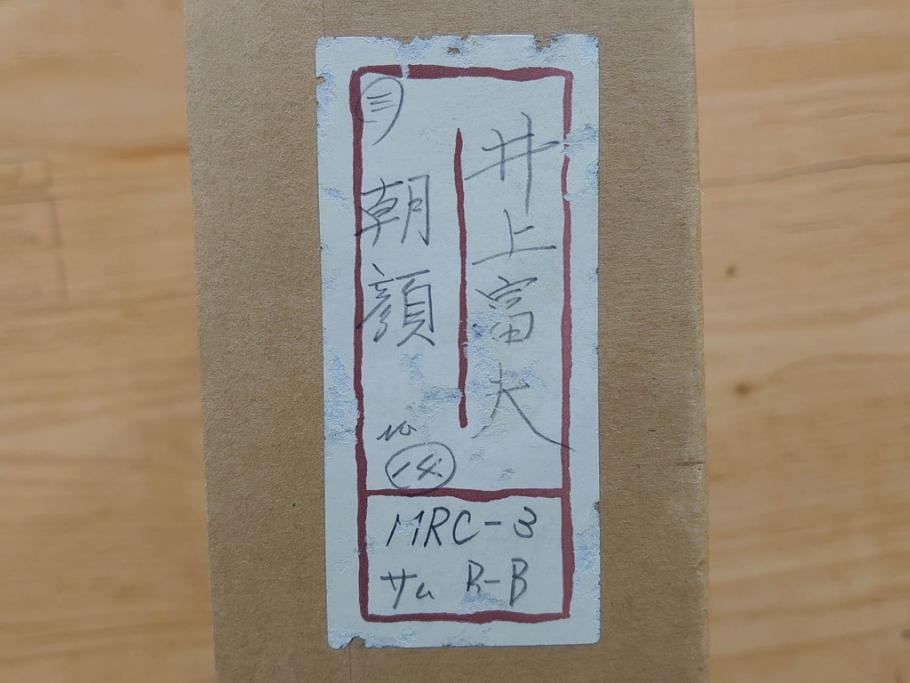 井上富夫
㊂
朝顔
No
⑭
MRC-3
サu B-B